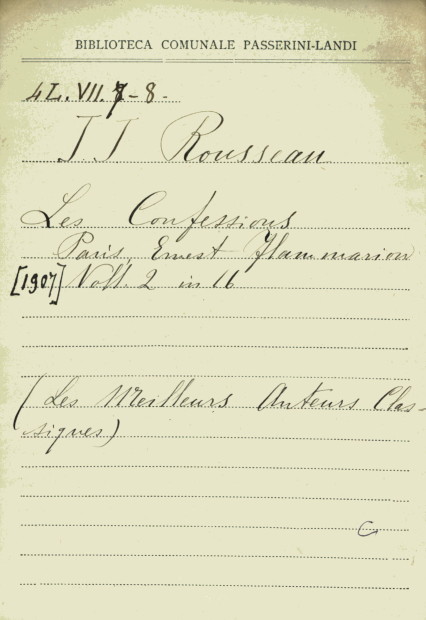 BIBLIOTECA COMUNALE PASSERINI-LANDI
4L. VII. 7-8-
J. J Rousseau
Les Confessions
Paris, Ernest Flammarion
[1907] Voll. 2 in 16
(Les Meilleurs Auteurs Clas-
siques)
C